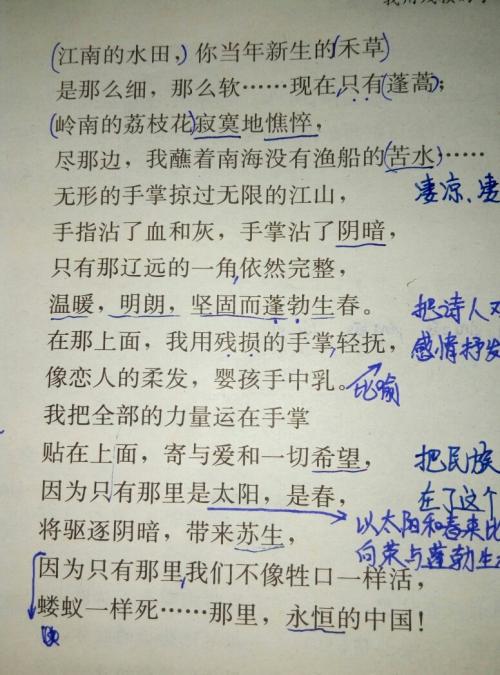 (江南的水田,)你当年新生的(禾草)
是那么细，那么软……现在只有(蓬蒿)；
(岭南的荔枝花)寂寞地憔悴，
尽那边，我蘸着南海没有渔船的(苦水)……
无形的手掌掠过无限的江山， 凄凉、凄
手指沾了血和灰，手掌沾了阴暗，
只有那辽远的一角依然完整，
温暖，明朗，坚固而蓬勃生春。 把诗人
在那上面，我用残损的手掌轻抚， 感情抒发
像恋人的柔发，婴孩手中乳。 比喻
我把全部的力量运在手掌
贴在上面，寄与爱和一切希望， 把民族
因为只有那里是太阳，是春， 在了这个
将驱逐阴暗，带来苏生， 以太阳和春来比
因为只有那里我们不像牲口一样活， 向荣与蓬勃生
蝼蚁一样死……那里，永恒的中国！